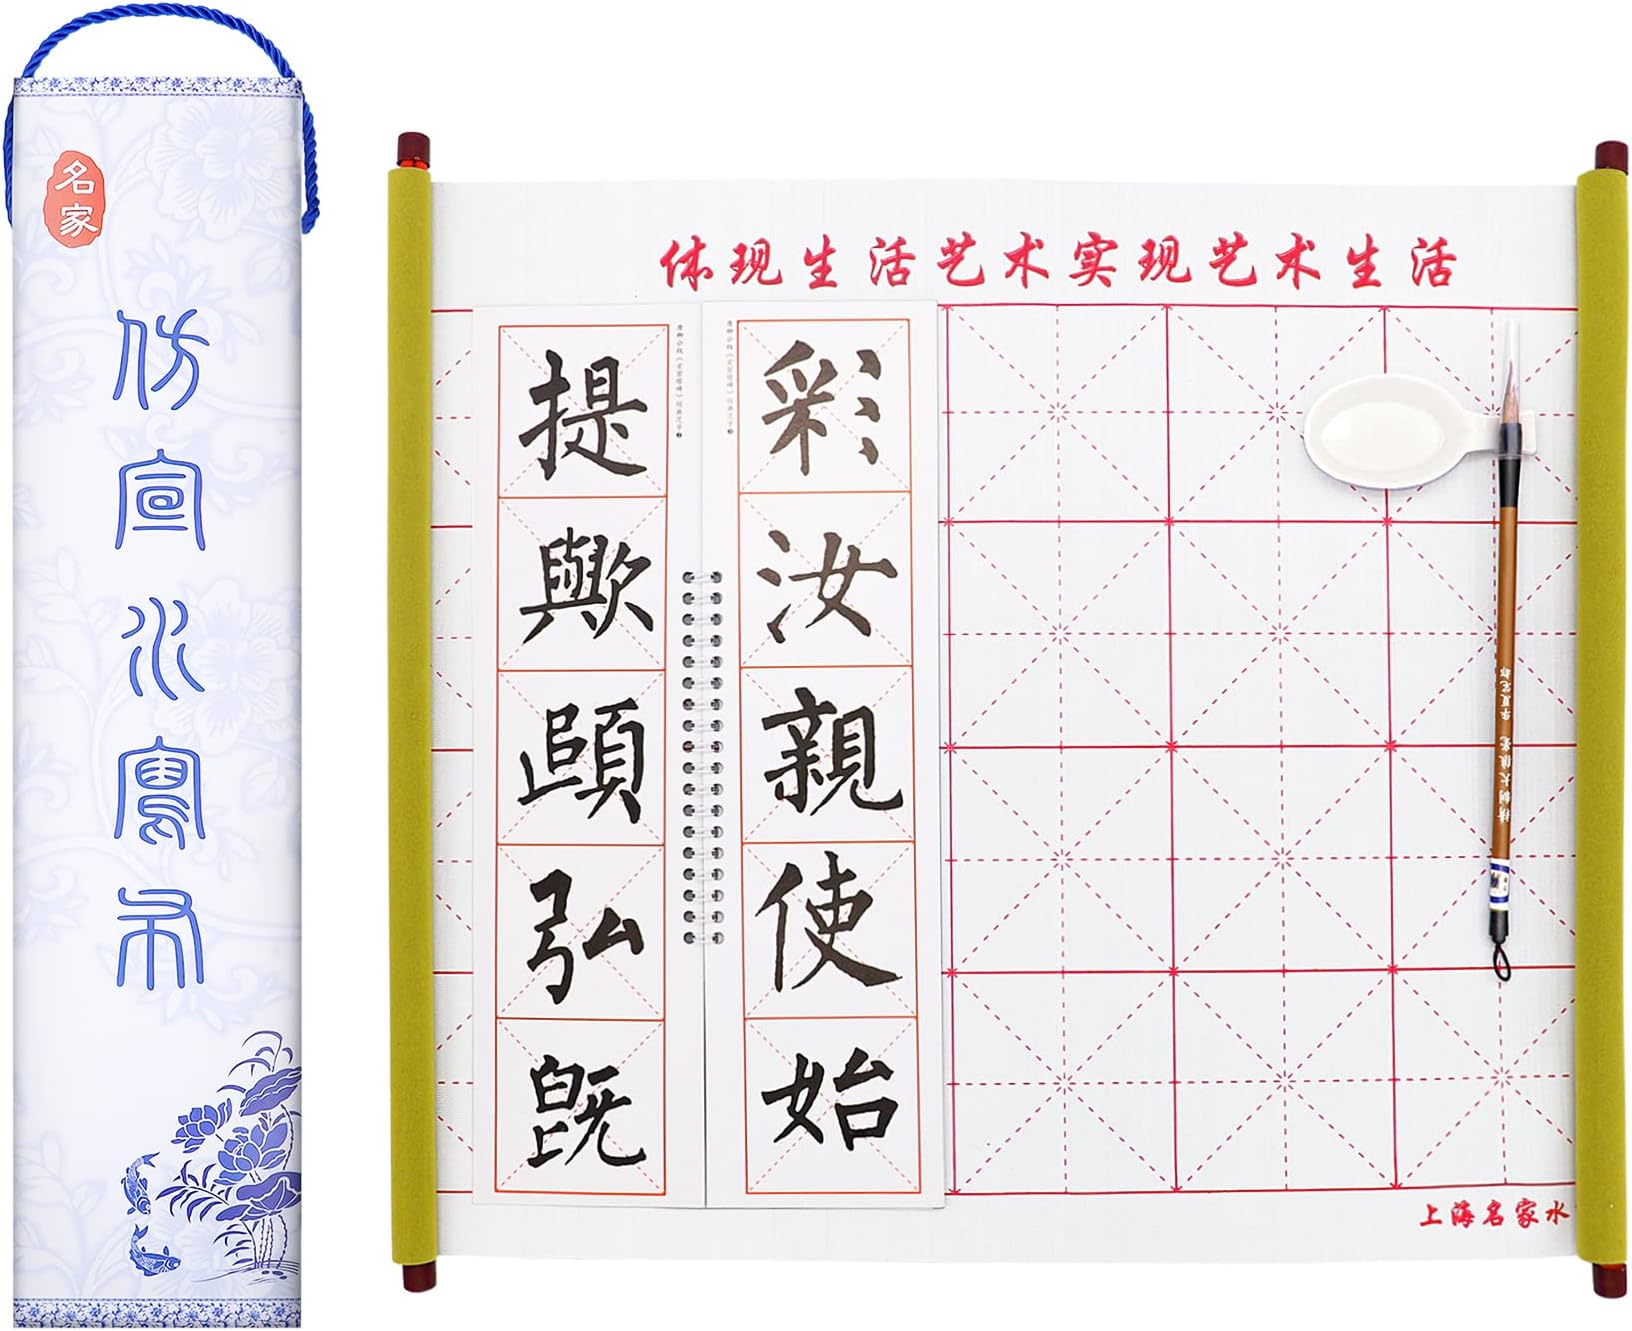 名家
仿宣水寫布
体现生活艺术实现艺术生活
提歟頤弘既
彩汝親使始
上海名家水